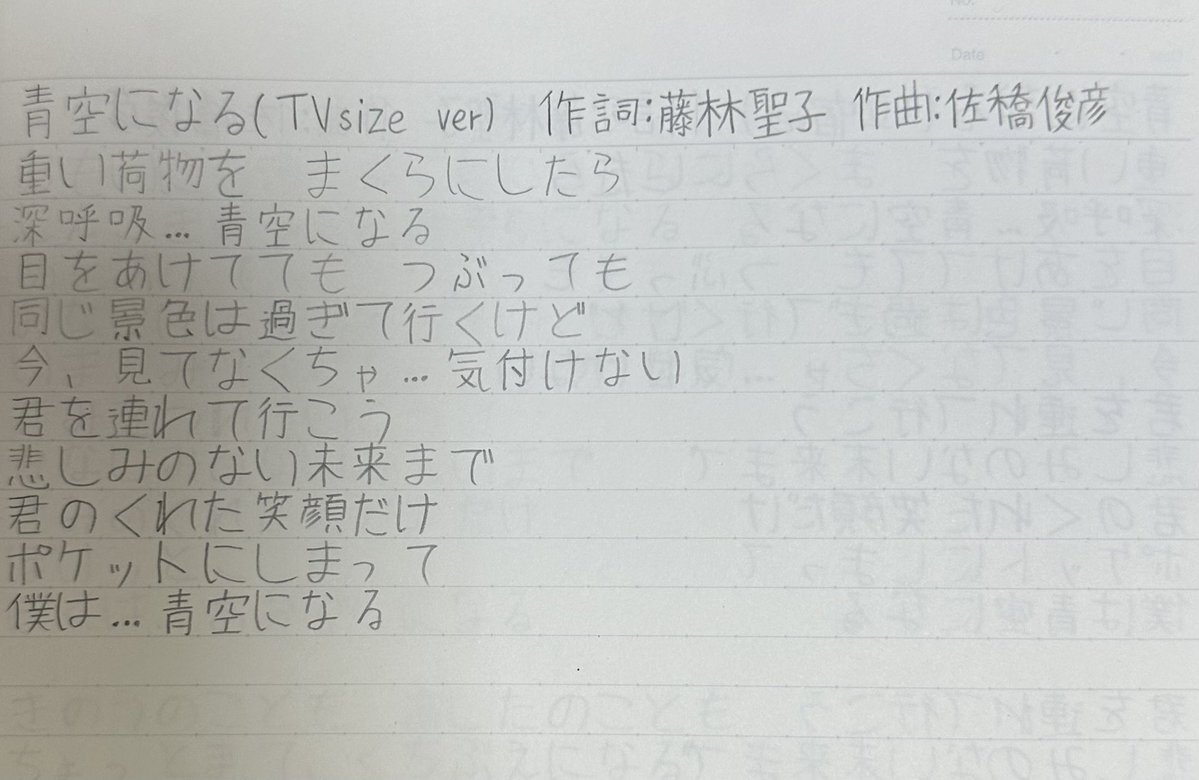 青空になる(TVsize ver) 作詞:藤林聖子 作曲:佐橋俊彦
重い荷物を まくらにしたら
深呼吸… 青空になる
目をあけてても つぶっても
同じ景色は過ぎて行くけど
今、見てなくちゃ…気付けない
君を連れて行こう
悲しみのない未来まで
君のくれた笑顔だけ
ポケットにしまって
僕は…青空になる